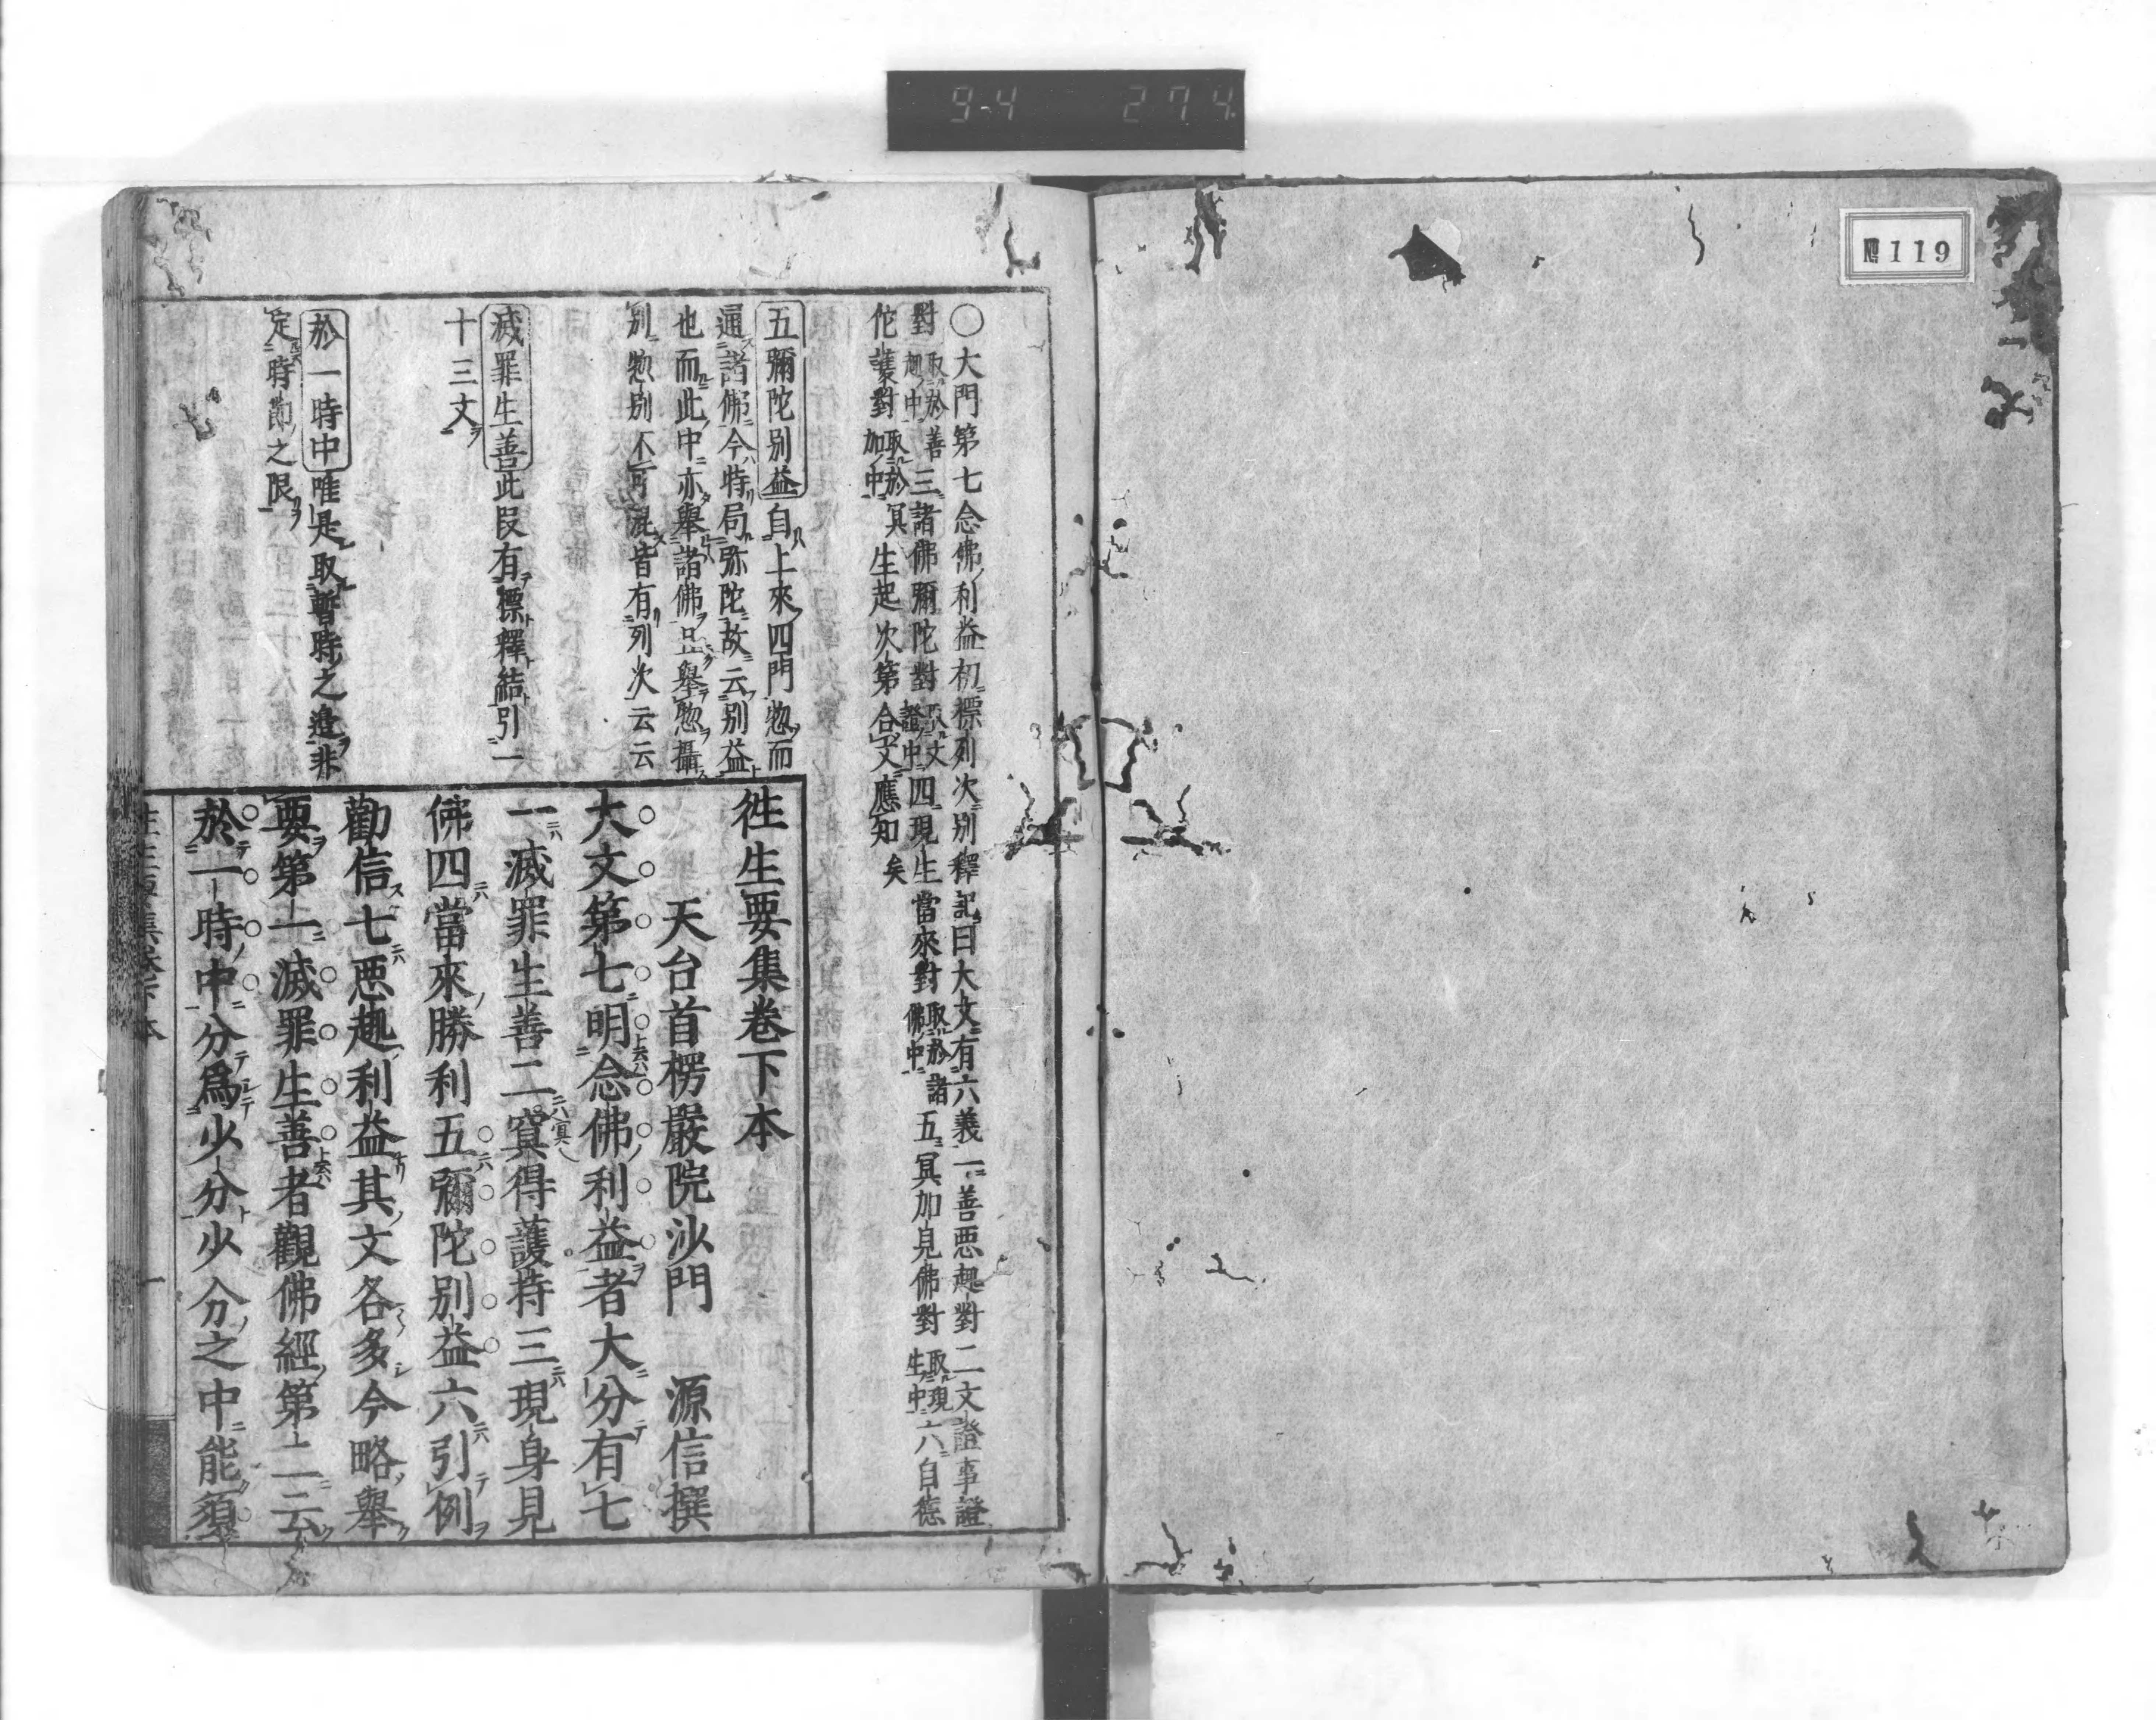 9-4 274
№119
〇大門第七念佛利益初標列次別釋記曰大文有六義一善悪趣對二文證事證
對取於善趣中三諸佛彌陀對取文證中四現生當來對取於諸佛中五冥加見佛對取現生中六自德
佗護對取於冥加中生起次第合文應知矣
五彌陀別益自上來四門惣而
通諸佛今特局弥陀故云別益
也而此中亦舉諸佛並舉惣攝
別惣別不可混皆有列次云云
滅罪生善此段有標釋結引一
十三文
於一時中唯是取暫時之邉非
定時節之限
往生要集卷下本
天台首楞嚴院沙門 源信撰
大文第七明念佛利益者大分有七
一滅罪生善二冥得護持三現身見
佛四當來勝利五彌陀別益六引例
勸信七悪趣利益其文各多今略舉
要第一滅罪生善者觀佛經第二云
於一時中分爲少分少分之中能須
往生要集卷下本 一